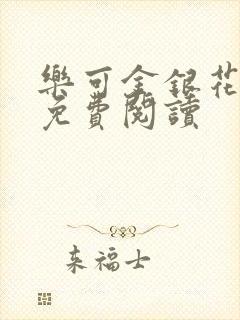 樂可金銀花
免費閱讀
来福士